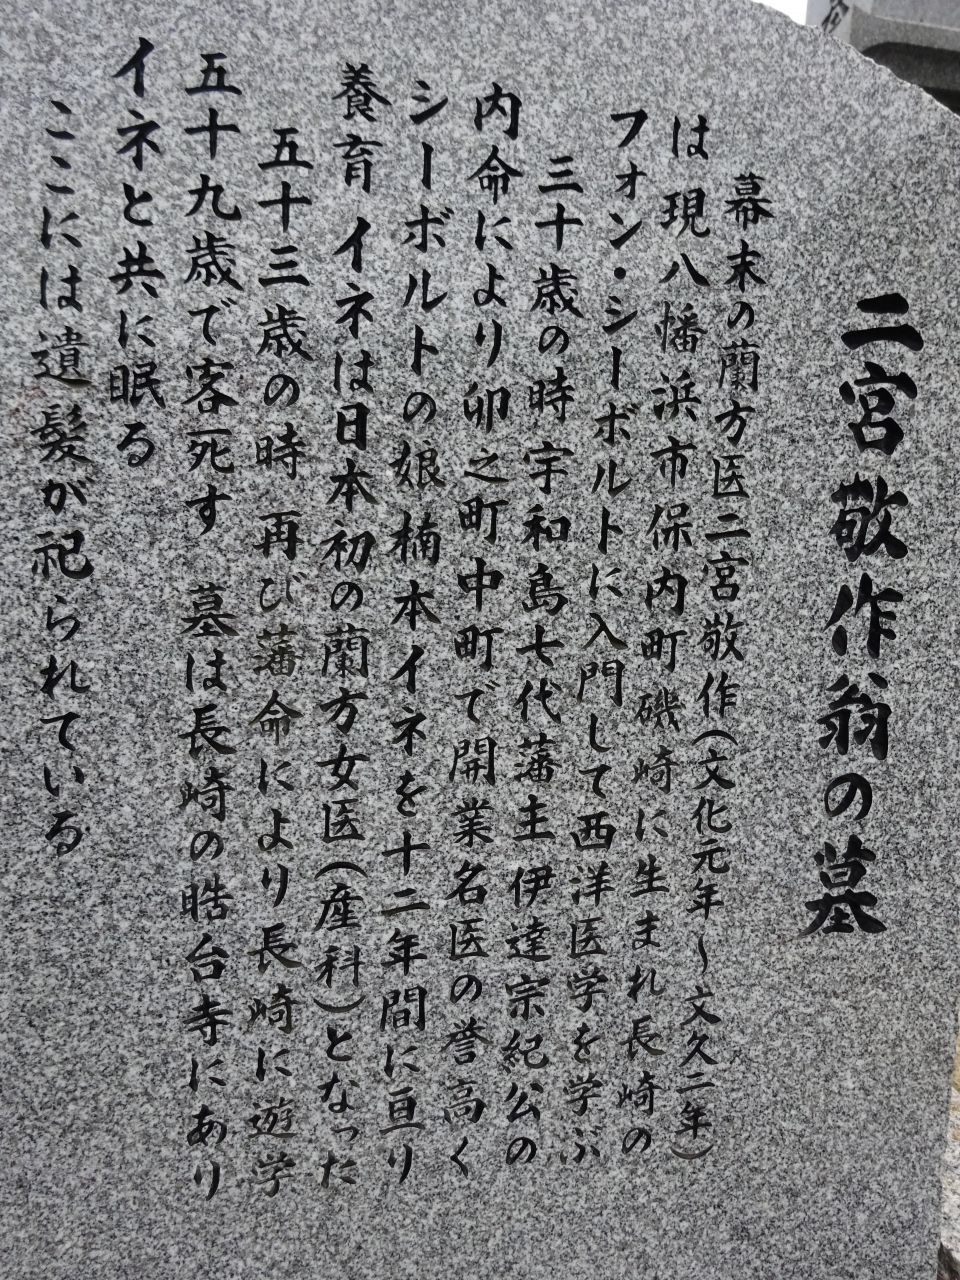 二宮敬作翁の墓
幕末の蘭方医二宮敬作(文化元年〜文久二年)
は現八幡浜市保内町磯崎に生まれ長崎の
フォン・シーボルトに入門して西洋医学を学ぶ
三十歳の時宇和島七代藩主伊達宗紀公の
内命により卯之町中町で開業名医の誉高く
シーボルトの娘楠本イネを十二年間に亘り
養育 イネは日本初の蘭方女医(産科)となった
五十三歳の時再び藩命により長崎に遊学
五十九歳で客死す 墓は長崎の晧台寺にあり
イネと共に眠る
ここには遺髪が祀られている